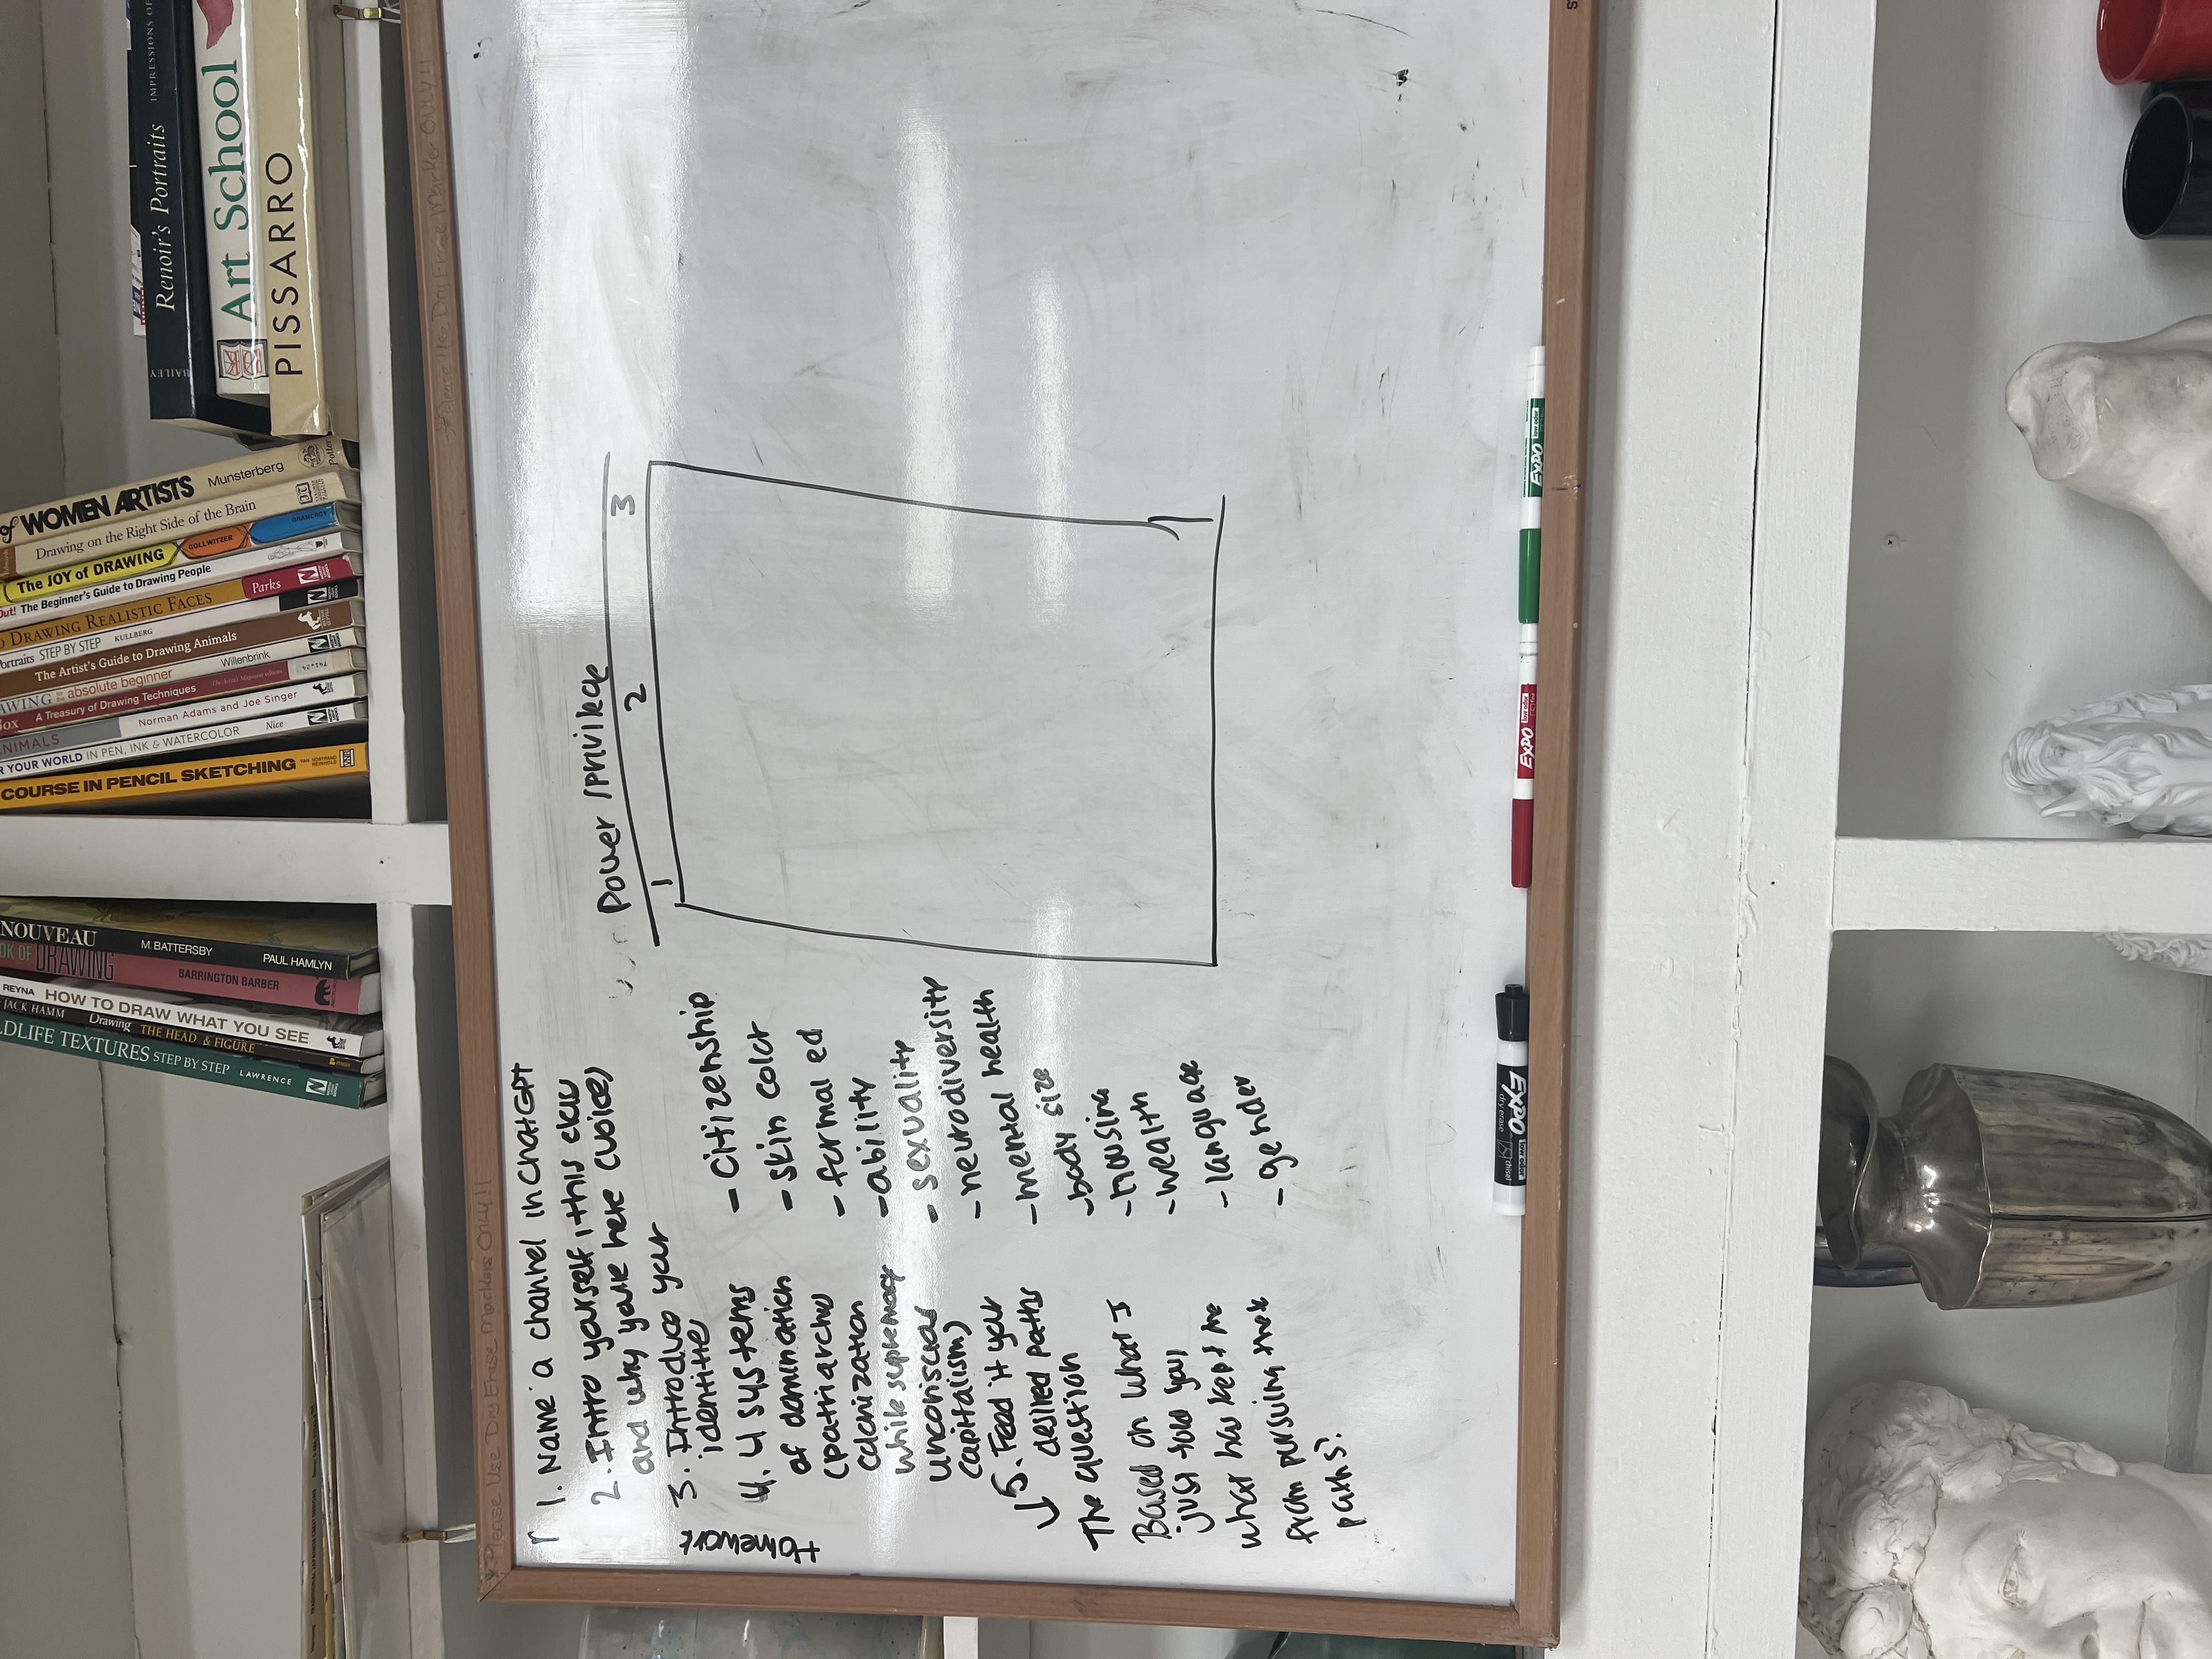 *Please Use Dry Erase Markers ONLY!!
*Please Use Dry Erase Marker ONLY!!
1. Name a channel in ChatGPT
2. Intro yourself, this class
and why you're here (voice)
3. Introduce your
identities
4. 4 systems
of domination
(patriarchy
colonization
white supremacy
capitalism)
5. Feed it your
desired paths
The question
Based on what I
just told you,
what has kept me
from pursuing these
paths?
Homework
- Citizenship
- skin color
- formal ed
- ability
- sexuality
- neurodiversity
- mental health
- body size
- housing
- wealth
- language
- gender
Power / privilege
1 2 3
LDLIFE TEXTURES STEP BY STEP LAWRENCE
JACK HAMM Drawing THE HEAD & FIGURE
REYNA HOW TO DRAW WHAT YOU SEE
OK OF DRAWING BARRINGTON BARBER
NOUVEAU M. BATTERSBY PAUL HAMLYN
COURSE IN PENCIL SKETCHING VAN NOSTRAND REINHOLD
R YOUR WORLD IN PEN, INK & WATERCOLOR Nice
ANIMALS Norman Adams and Joe Singer
BOX A Treasury of Drawing Techniques The Artist's Magazine editors 741.24
AWING for the absolute beginner Willenbrink
The Artist's Guide to Drawing Animals
ortraits STEP BY STEP KULLBERG
O DRAWING REALISTIC FACES Parks
Out! The Beginner's Guide to Drawing People
The JOY of DRAWING GOLLWITZER GRAMERCY
Drawing on the Right Side of the Brain
of WOMEN ARTISTS Munsterberg Potter
PISSARRO
DK Art School
BAILEY Renoir's Portraits IMPRESSIONS OF
EXPO dry erase low odor chisel
EXPO low odor
EXPO low odor